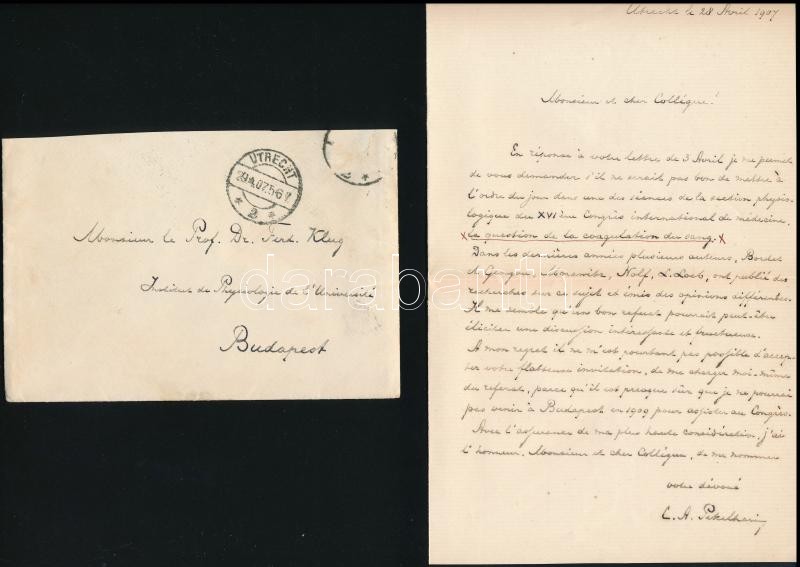 UTRECHT
29.4.07.5-6V
* 2 *
2 *
Monsieur le Prof. Dr. Ferd. Klug
Institut de Physiologie de l'Université
Budapest
Utrecht le 28 Avril 1907
Monsieur et cher Collègue!
En réponse à votre lettre de 3 Avril je me permet
de vous demander s'il ne serait pas bon de mettre à
l'ordre du jour dans une des séances de la section physio-
logique du XVIème Congrès international de médecine,
x la question de la coagulation du sang. x
Dans les dernières années plusieurs auteurs, Bordet
et Gengou, Morawitz, Nolf, L. Loeb, ont publié des
recherches sur ce sujet et émis des opinions différentes.
Il me semble qu'un bon referat pourrait peut-être
éliciter une discussion intéressante et fructueuse.
A mon regret il ne m'est pourtant pas possible d'accep-
ter votre flatteuse invitation, de me charger moi-même
du referat, parce qu'il est presque sûr que je ne pourrai
pas venir à Budapest en 1909 pour assister au Congrès.
Avec l'assurance de ma plus haute considération, j'ai
l'honneur, Monsieur et cher Collègue, de me nommer
votre dévoué
C. A. Pekelharing
darabanth